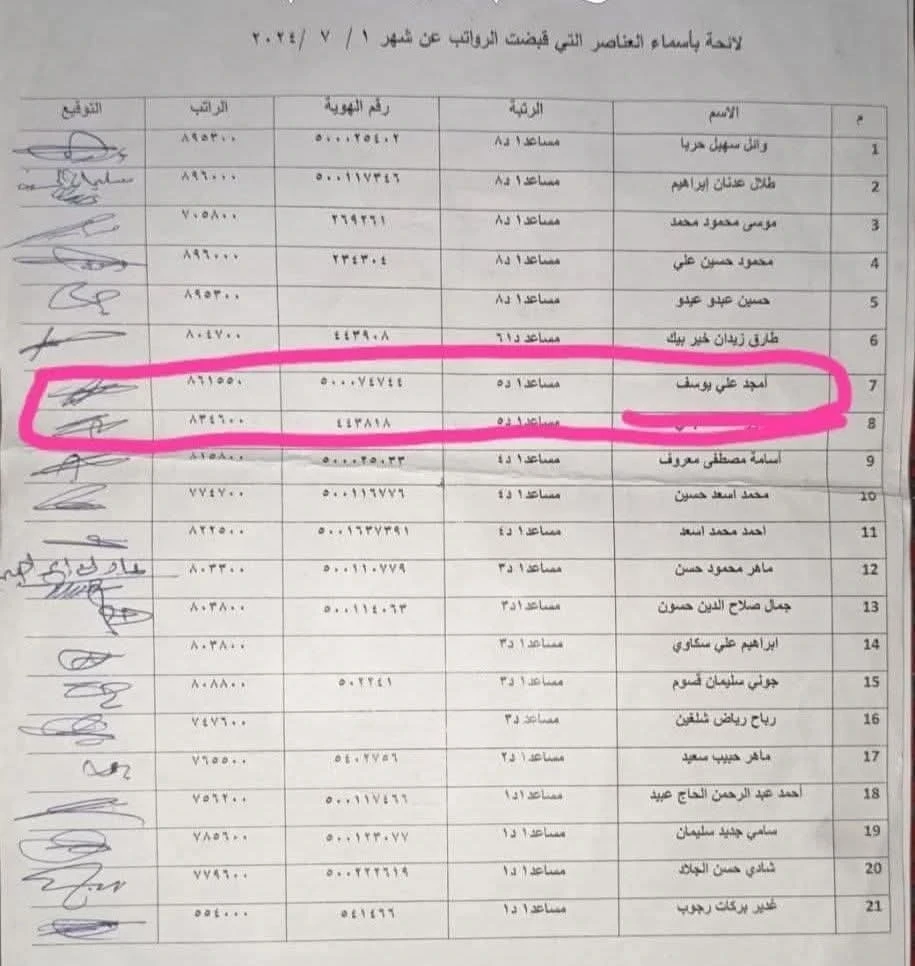 لائحة بأسماء العناصر التي قبضت الرواتب عن شهر ١ / ٧ /٢٠٢٤
م الاسم الرتبة رقم الهوية الراتب التوقيع
1 وائل سهيل حربا مساعد١ د٨ ٥٠٠٠٢٥٤٠٢ ٨٩٥٣٠٠
2 طلال عدنان إبراهيم مساعد١ د٨ ٥٠٠١١٧٣٤٦ ٨٩٦٠٠٠
3 موسى محمود محمد مساعد١ د٨ ٢٦٩٢٦١ ٧٠٥٨٠٠
4 محمود حسين علي مساعد١ د٨ ٢٣٤٣٠٤ ٨٩٦٠٠٠
5 حسين عبدو عبدو مساعد١ د٨ ٨٩٥٣٠٠
6 طارق زيدان خير بيك مساعد د٦١ ٤٤٣٩٠٨ ٨٠٤٧٠٠
7 أمجد علي يوسف مساعد١ د٥ ٥٠٠٠٧٤٧٤٤ ٨٦١٥٥٠
8 مساعد١ د٥ ٤٤٣٨١٨ ٨٣٤٦٠٠
9 أسامة مصطفى معروف مساعد١ د٤ ٥٠٠٠٢٥٠٣٣ ٨١٥٨٠٠
10 محمد اسعد حسين مساعد١ د٤ ٥٠٠١١٦٧٧٦ ٧٧٤٧٠٠
11 احمد محمد اسعد مساعد١ د٤ ٥٠٠١٦٣٧٣٩١ ٨٢٢٥٠٠
12 ماهر محمود حسن مساعد١ د٣ ٥٠٠١١٠٧٧٩ ٨٠٣٣٠٠
13 جمال صلاح الدين حسون مساعد١ د٣ ٥٠٠١١٤٠٦٣ ٨٠٣٨٠٠
14 ابراهيم علي سكاوي مساعد١ د٣ ٨٠٣٨٠٠
15 جوني سليمان قسوم مساعد١ د٣ ٥٠٢٢٤١ ٨٠٨٨٠٠
16 رباح رياض شلغين مساعد د٣ ٧٤٧٦٠٠
17 ماهر حبيب سعيد مساعد١ د٢ ٥٤٠٢٧٥٦ ٧٦٥٥٠٠
18 احمد عبد الرحمن الحاج عبيد مساعد١ د١ ٥٠٠١١٧٤٦٦ ٧٥٦٢٠٠
19 سامي جديد سليمان مساعد١ د١ ٥٠٠١٢٣٠٧٧ ٧٨٥٦٠٠
20 شادي حسن الجلاد مساعد١ د١ ٥٠٠٢٢٢٦١٩ ٧٧٩٦٠٠
21 غدير بركات رجوب مساعد١ د١ ٥٤١٤٦٦ ٥٥٤٠٠٠